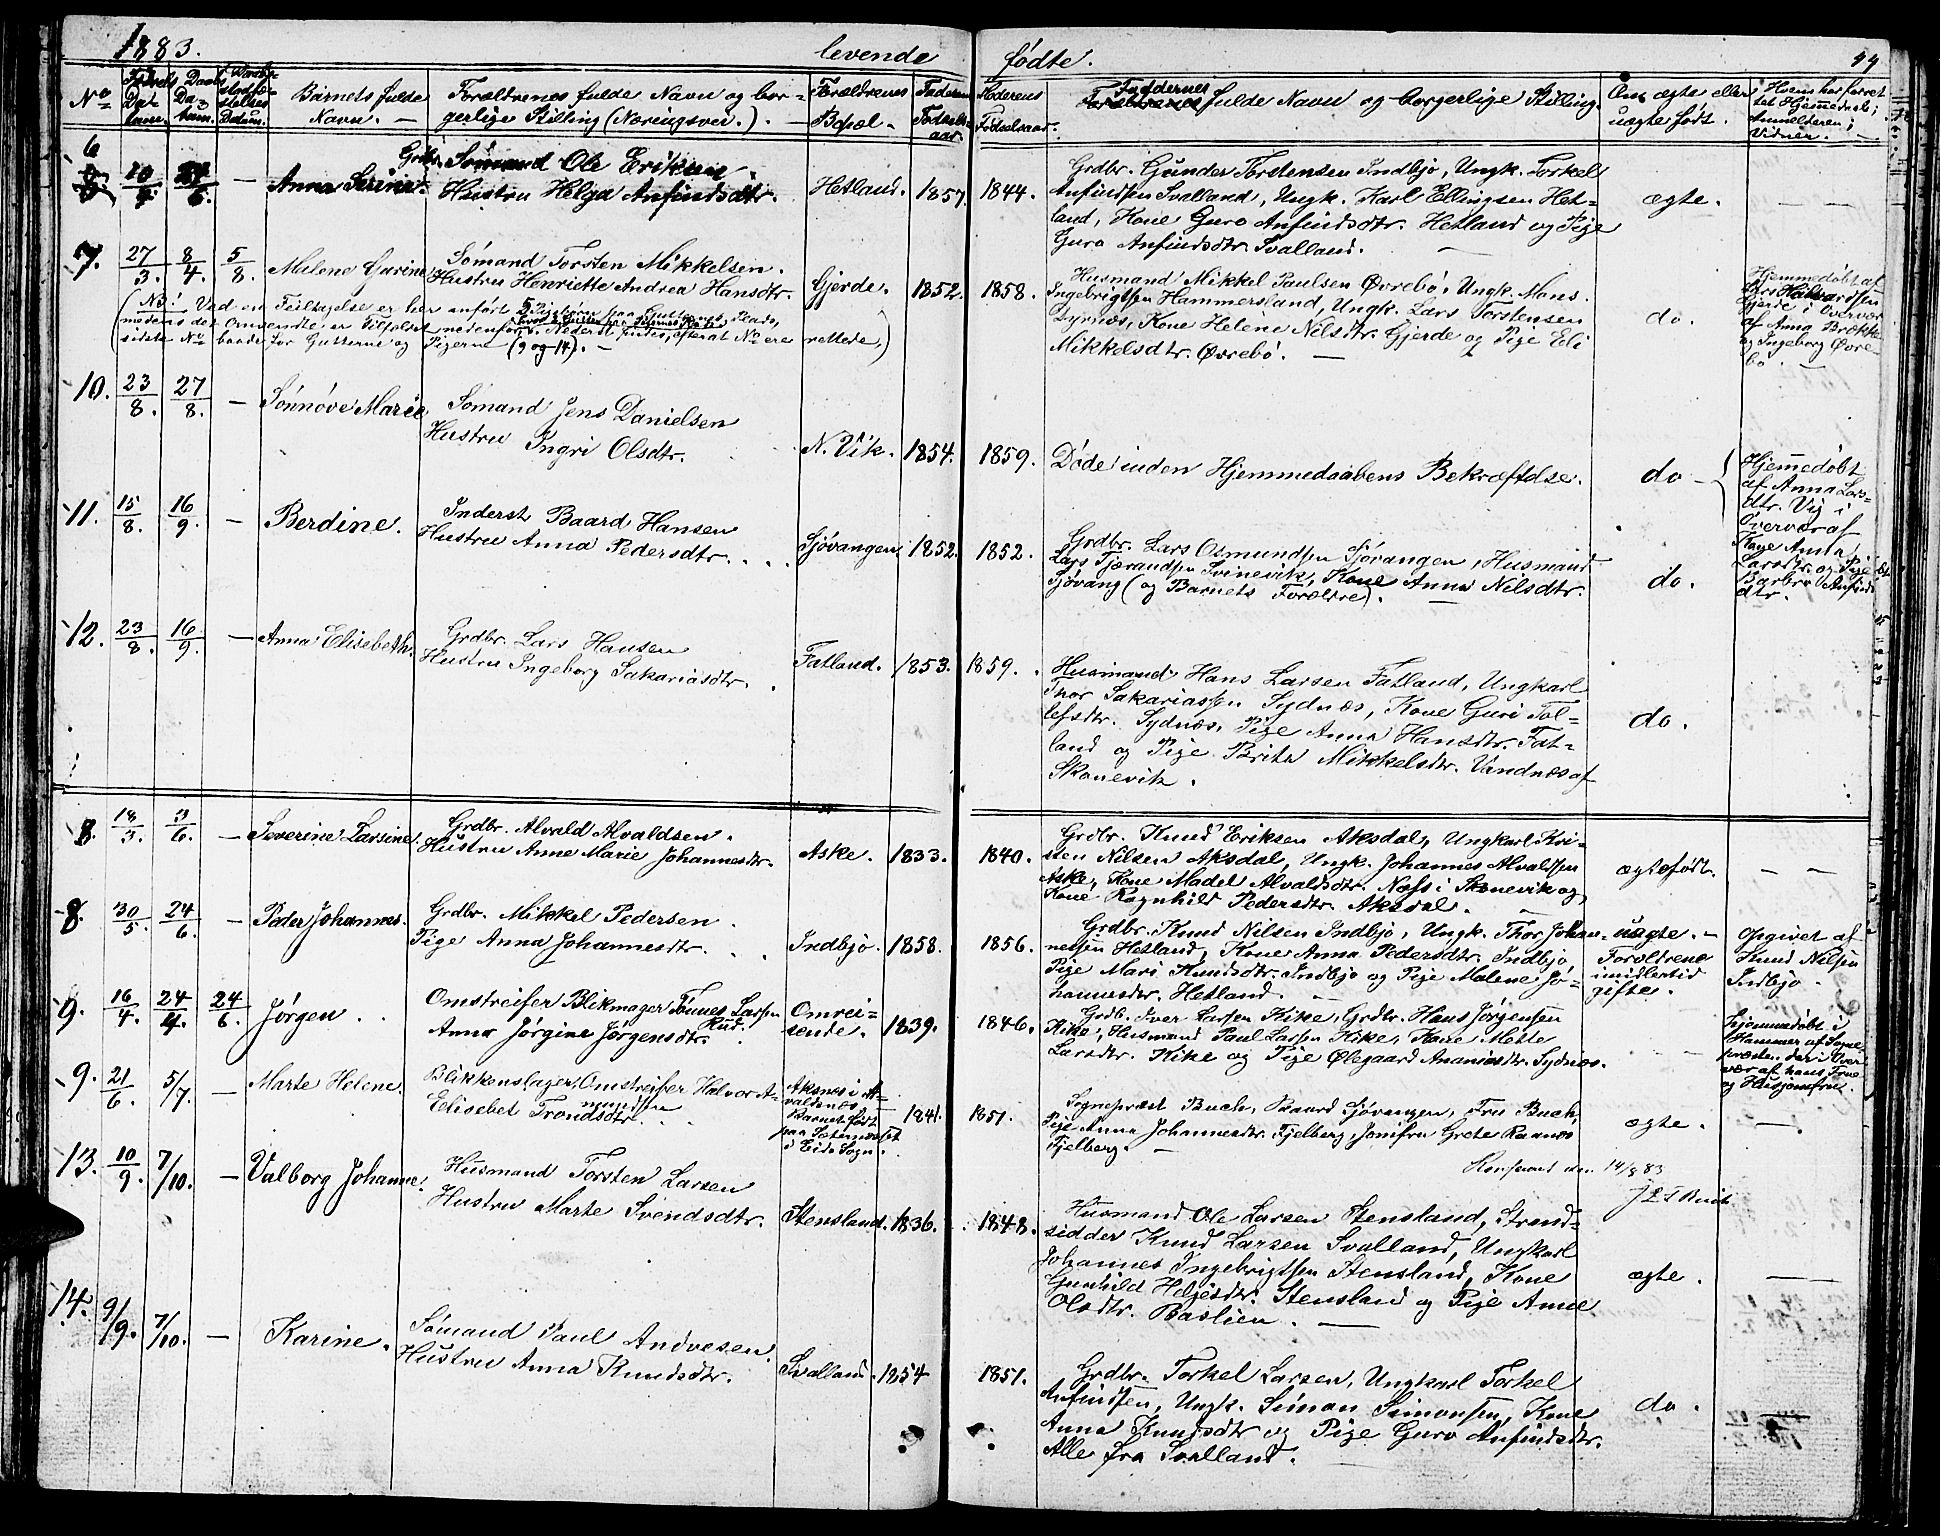 1883.
levende
fødte.
No
Fødsels Datum.
Daabs Datum.
Barnets fulde Navn. —
Forældrenes fulde Navn og borgerlige Stilling (Næringsvei.). —
Forældrenes Bopæl. —
Faderens Fødselsaar.
Moderens Fødselsaar.
Faddernes fulde Navn og borgerlige Stilling.
Om ægte eller uægte født.
Hvem har forrettet Hjemmedaab; Anmelderen; Vidner. —
6
10/4
Anna Serine.
Grdbr. Sømand Ole Eriksen
Hustru Helga Anfindsdtr.
Hetland. 1857.
1844.
Grdbr. Gunder Torstensen Indbjo, Ungk. Torkel
Anfindssen Svalland, Ungk. Karl Ellingsen Het-
land, Kone Guro Anfindsdtr. Hetland og Pige
Guro Anfindsdtr. Svalland. —
ægte. — —
7. 27/3. 8/4. 5/8. Malene Gurine
Sømand Torsten Mikkelsen.
Hustru Henriette Andrea Hansdtr.
Gjerde. 1852.
1858.
Husmand Mikkel Paulsen Øvrebø, Ungk. Mons
Ingebrigtsen Hammersland, Ungk. Lars Torstensen
Dyrnæs, Kone Helene Nilsdtr. Gjerde og Pige Eli
Mikkelsdtr. Øvrebø. —
do.
Hjemmedøbt af
Lars Halvardsen
Gjerde i Overvær
af Anna Brække
og Ingeborg Øvre-
bø. —
(NB! Ved en Feiltagelse er her anført 5 Pigebørn paa Gutternes Plads,
medens det Omvendte er Tilfældet nedenfor,
sidste No baade for Gutterne og Pigerne (9 og 14). — rettede.)
10. 23/8. 27/8. — Sønnøve Marie
Sømand Jens Danielsen
Hustru Ingri Olsdtr.
N. Vik. 1854.
1859. Døde inden Hjemmedaabens Bekræftelse.
do —
Hjemmedøbt
af Anna Lars-
dtr. Vig i
Overvær af
Kone Anna
Larsdtr. og Pige
Barbro Anfinds
dtr.
11. 15/8. 16/9. — Berdine.
Inderst Baard Hansen
Hustru Anna Pedersdtr.
Sjøvangen 1852.
1852.
Grdbr. Lars Osmundsen Sjøvangen, Husmand
Lars Tjærandsen Svinevik, Kone Anna Nilsdtr.
Sjøvang (og Barnets Forældre). —
do.
12. 23/8. 16/9. — Anna Elisebeth.
Grdbr. Lars Hansen
Hustru Ingeborg Sakariasdtr.
Fatland. 1853.
1859.
Husmand Hans Larsen Fatland, Ungkarl
Thor Sakariassen Sydnæs, Kone Guri Tol-
lefsdtr. Sydnæs, Pige Anna Hansdtr. Fat-
land og Pige Brita Mikkelsdtr. Vandnæs af
Skonevik.
do.
8. 18/3. 3/6. — Severine Larsine.
Grdbr. Alvald Alvaldsen.
Hustru Anne Marie Johannesdtr.
Aske. 1833.
1840.
Grdbr. Knud Eriksen Aksdal, Ungkarl Kri-
sten Nilsen Aksdal, Ungk. Johannes Alvaldsen
Aske, Kone Madel Alvaldsdtr. Næss i Skonevik og
Kone Ragnhild Pedersdtr. Aksdal. —
ægtefødt. — —
8. 30/5. 24/6. — Peder Johannes.
Grdbr. Mikkel Pedersen.
Pige Anna Johannesdtr.
Indbjo. 1858.
1856.
Grdbr. Knud Nilsen Indbjo, Ungk. Thor Johan-
nessen Hetland, Kone Anna Pedersdtr. Indbjo
Pige Mari Knudsdtr. Indbjo og Pige Malene Jo-
hannesdtr. Hetland. —
uægte. —
Forældrene
imidlertid
gifte.
Opgivet af
Knud Nilsen
Indbjo.
9. 16/4. 24/4. 24/6. Jørgen.
Omstreifer Blikmager Tønnes Larsen
Anna Jørgine Jørgensdtr.
Omrei-
sende. 1839.
1846.
Grdb. Iver Larsen Kike, Grdbr. Hans Jørgensen
Kike, Husmand Paul Larsen Kike, Kone Mette
Larsdtr. Kike og Pige Ølegaard Ananiasdtr. Sydnæs.
Hjemmedøbt i
Hammer af Sogne
præsten der i Over
vær af hans Frue
og Husjomfru.
9. 21/6. 5/7. — Marte Helene.
Blikkenslager, Omstreifer Halvor A-
mundsen
Elisebet Trondsdtr.
Aksnes i A-
valdsnæs
Barnet født
i Eids Sogn. 1841.
1851.
Sognepræst Buch, Baard Sjøvangen, Fru Buch,
Pige Anna Johannesdtr. Fjelberg, Jomfru Grete Raanæs
Fjelberg. —
ægte. —
Konfereret den 14/8 83
Buch
13. 10/9. 7/10. — Valborg Johanne.
Husmand Torsten Larsen
Hustru Marte Svendsdtr.
Stensland. 1836.
1848.
Husmand Ole Larsen Stensland, Strand-
sidder Knud Larsen Svalland, Ungkarl
Johannes Ingebrigtsen Stensland, Kone
Gunhild Helgesdtr. Stensland og Pige Anne
Olsdtr. Baslien. —
ægte.
14. 9/9. 7/10. — Karine.
Sømand Paul Andresen.
Hustru Anna Knudsdtr.
Svalland. 1854
1851.
Grdbr. Torkel Larsen, Ungkarl Torkel
Anfindsen, Ungk. Simon Simonsen, Kone
Anna Knudsdtr og Pige Guro Anfindsdtr.
Alle fra Svalland.
do.